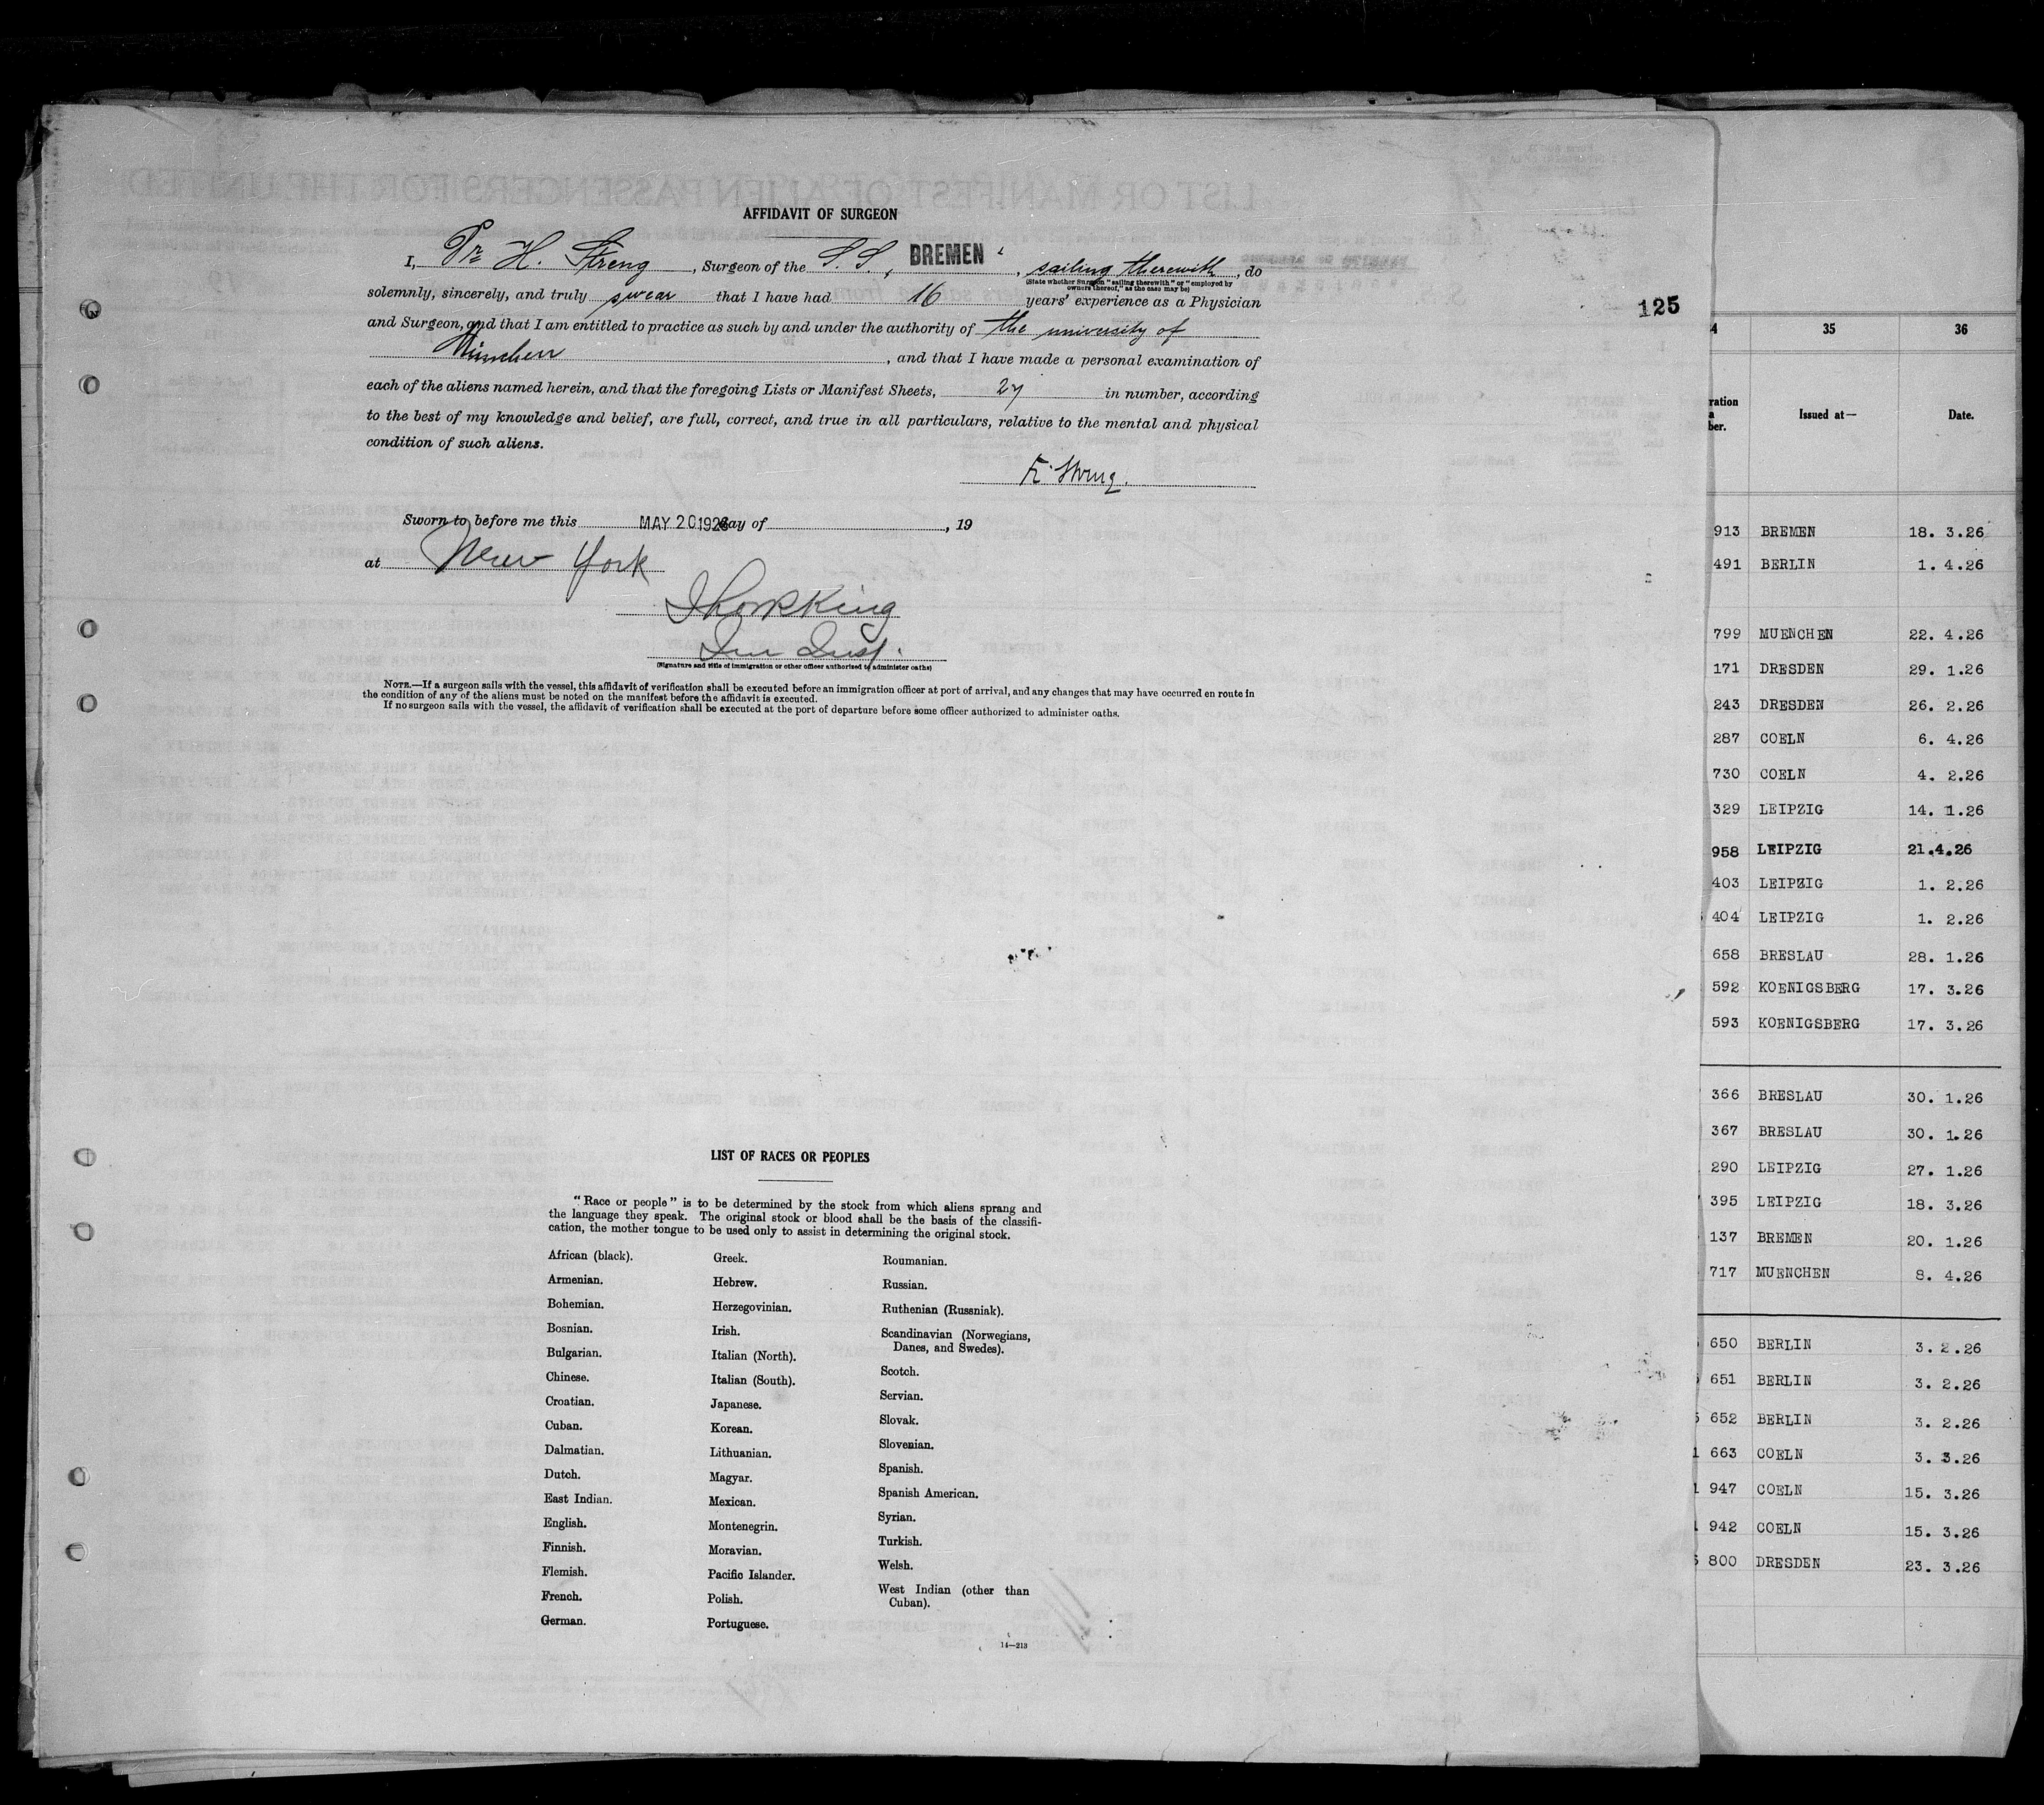 AFFIDAVIT OF SURGEON
I, Dr H. Streng, Surgeon of the S.S., BREMEN, sailing therewith, do
(State whether Surgeon "sailing therewith" or "employed by owners thereof," as the case may be)
solemnly, sincerely, and truly swear that I have had 16 years' experience as a Physician
and Surgeon, and that I am entitled to practice as such by and under the authority of the university of
München, and that I have made a personal examination of
each of the aliens named herein, and that the foregoing Lists or Manifest Sheets, 27 in number, according
to the best of my knowledge and belief, are full, correct, and true in all particulars, relative to the mental and physical
condition of such aliens.
Streng.
Sworn to before me this MAY 20 1926 day of , 19
at New York
King
Imm Insp.
(Signature and title of immigration or other officer authorized to administer oaths)
NOTE.—If a surgeon sails with the vessel, this affidavit of verification shall be executed before an immigration officer at port of arrival, and any changes that may have occurred en route in
the condition of any of the aliens must be noted on the manifest before the affidavit is executed.
If no surgeon sails with the vessel, the affidavit of verification shall be executed at the port of departure before some officer authorized to administer oaths.
125
LIST OF RACES OR PEOPLES
"Race or people" is to be determined by the stock from which aliens sprang and
the language they speak. The original stock or blood shall be the basis of the classifi-
cation, the mother tongue to be used only to assist in determining the original stock.
African (black).
Armenian.
Bohemian.
Bosnian.
Bulgarian.
Chinese.
Croatian.
Cuban.
Dalmatian.
Dutch.
East Indian.
English.
Finnish.
Flemish.
French.
German.
Greek.
Hebrew.
Herzegovinian.
Irish.
Italian (North).
Italian (South).
Japanese.
Korean.
Lithuanian.
Magyar.
Mexican.
Montenegrin.
Moravian.
Pacific Islander.
Polish.
Portuguese.
Roumanian.
Russian.
Ruthenian (Russniak).
Scandinavian (Norwegians,
Danes, and Swedes).
Scotch.
Servian.
Slovak.
Slovenian.
Spanish.
Spanish American.
Syrian.
Turkish.
Welsh.
West Indian (other than
Cuban).
14—213
4 35 36
ration
a
ber. Issued at— Date.
913 BREMEN 18. 3.26
491 BERLIN 1. 4.26
799 MUENCHEN 22. 4.26
171 DRESDEN 29. 1.26
243 DRESDEN 26. 2.26
287 COELN 6. 4.26
730 COELN 4. 2.26
329 LEIPZIG 14. 1.26
958 LEIPZIG 21.4.26
403 LEIPZIG 1. 2.26
404 LEIPZIG 1. 2.26
658 BRESLAU 28. 1.26
592 KOENIGSBERG 17. 3.26
593 KOENIGSBERG 17. 3.26
366 BRESLAU 30. 1.26
367 BRESLAU 30. 1.26
290 LEIPZIG 27. 1.26
395 LEIPZIG 18. 3.26
137 BREMEN 20. 1.26
717 MUENCHEN 8. 4.26
650 BERLIN 3. 2.26
651 BERLIN 3. 2.26
652 BERLIN 3. 2.26
663 COELN 3. 3.26
947 COELN 15. 3.26
942 COELN 15. 3.26
800 DRESDEN 23. 3.26